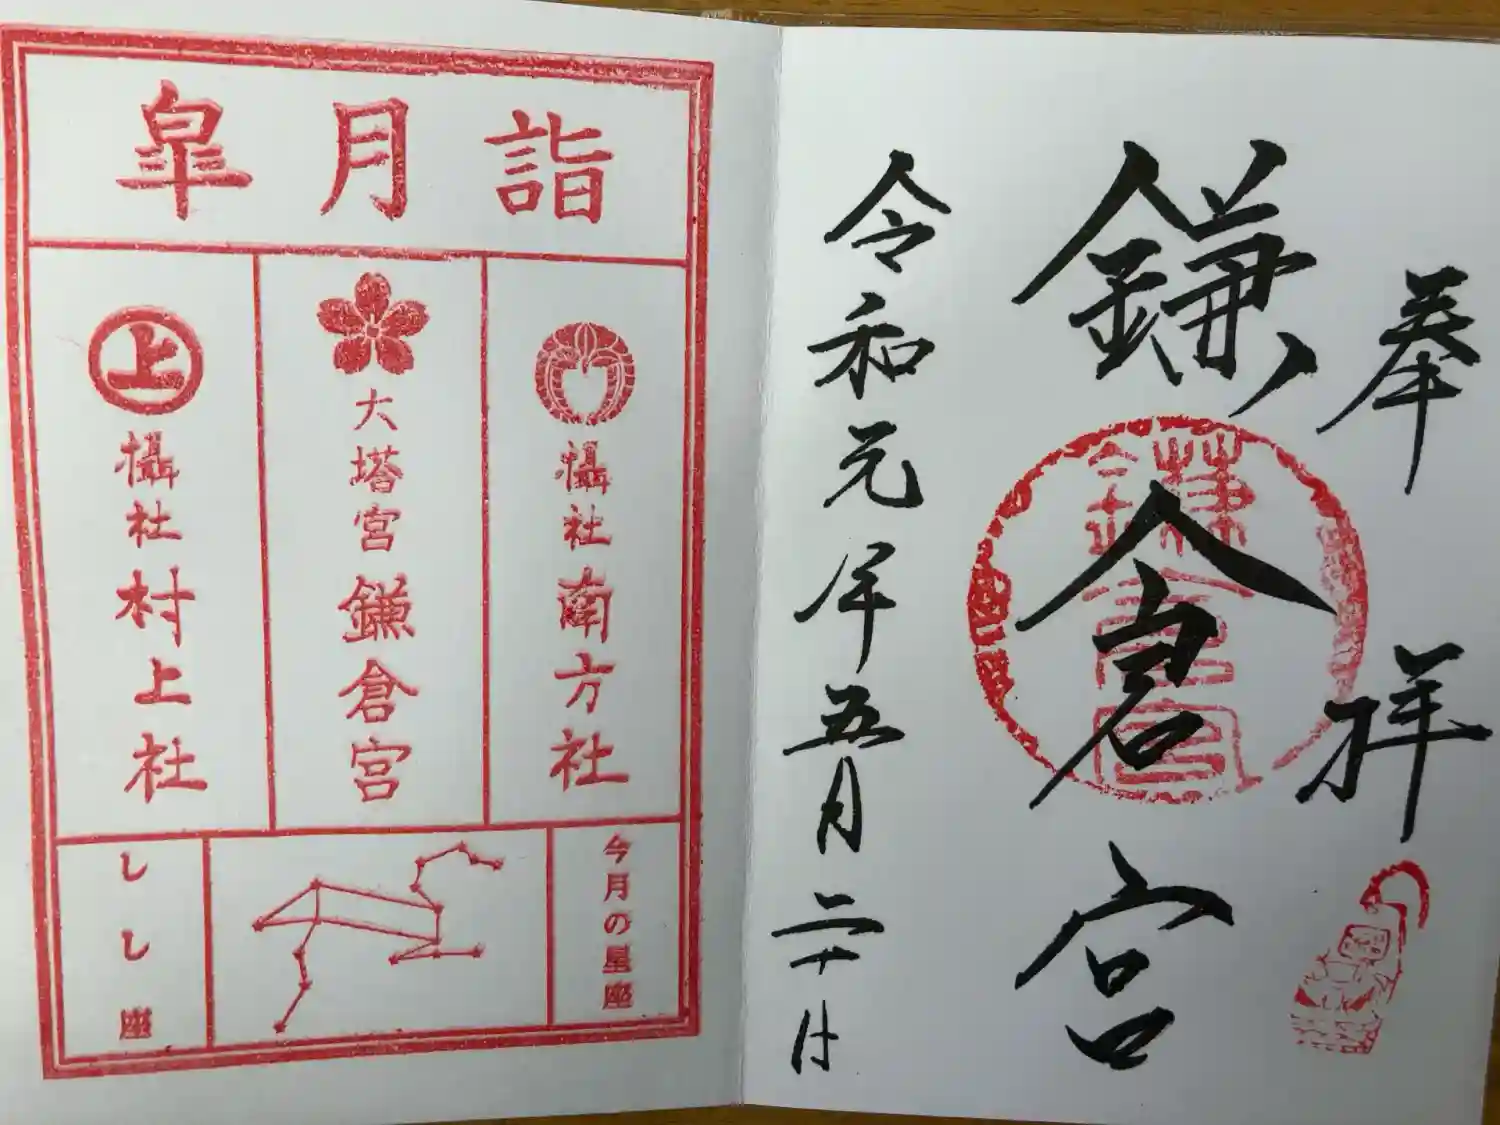 奉拝
鎌倉宮
鎌倉宮
令和元年五月二十日
皐月詣
攝社 南方社
大塔宮 鎌倉宮
上
攝社 村上社
今月の星座
しし座